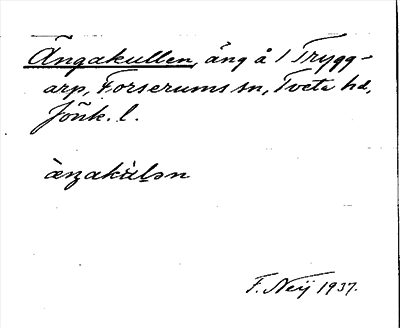 Ängakullen, äng å 1 Trygg-
arp, Forserums sn, Tveta hd,
Jönk. l.
F. Neij 1937.